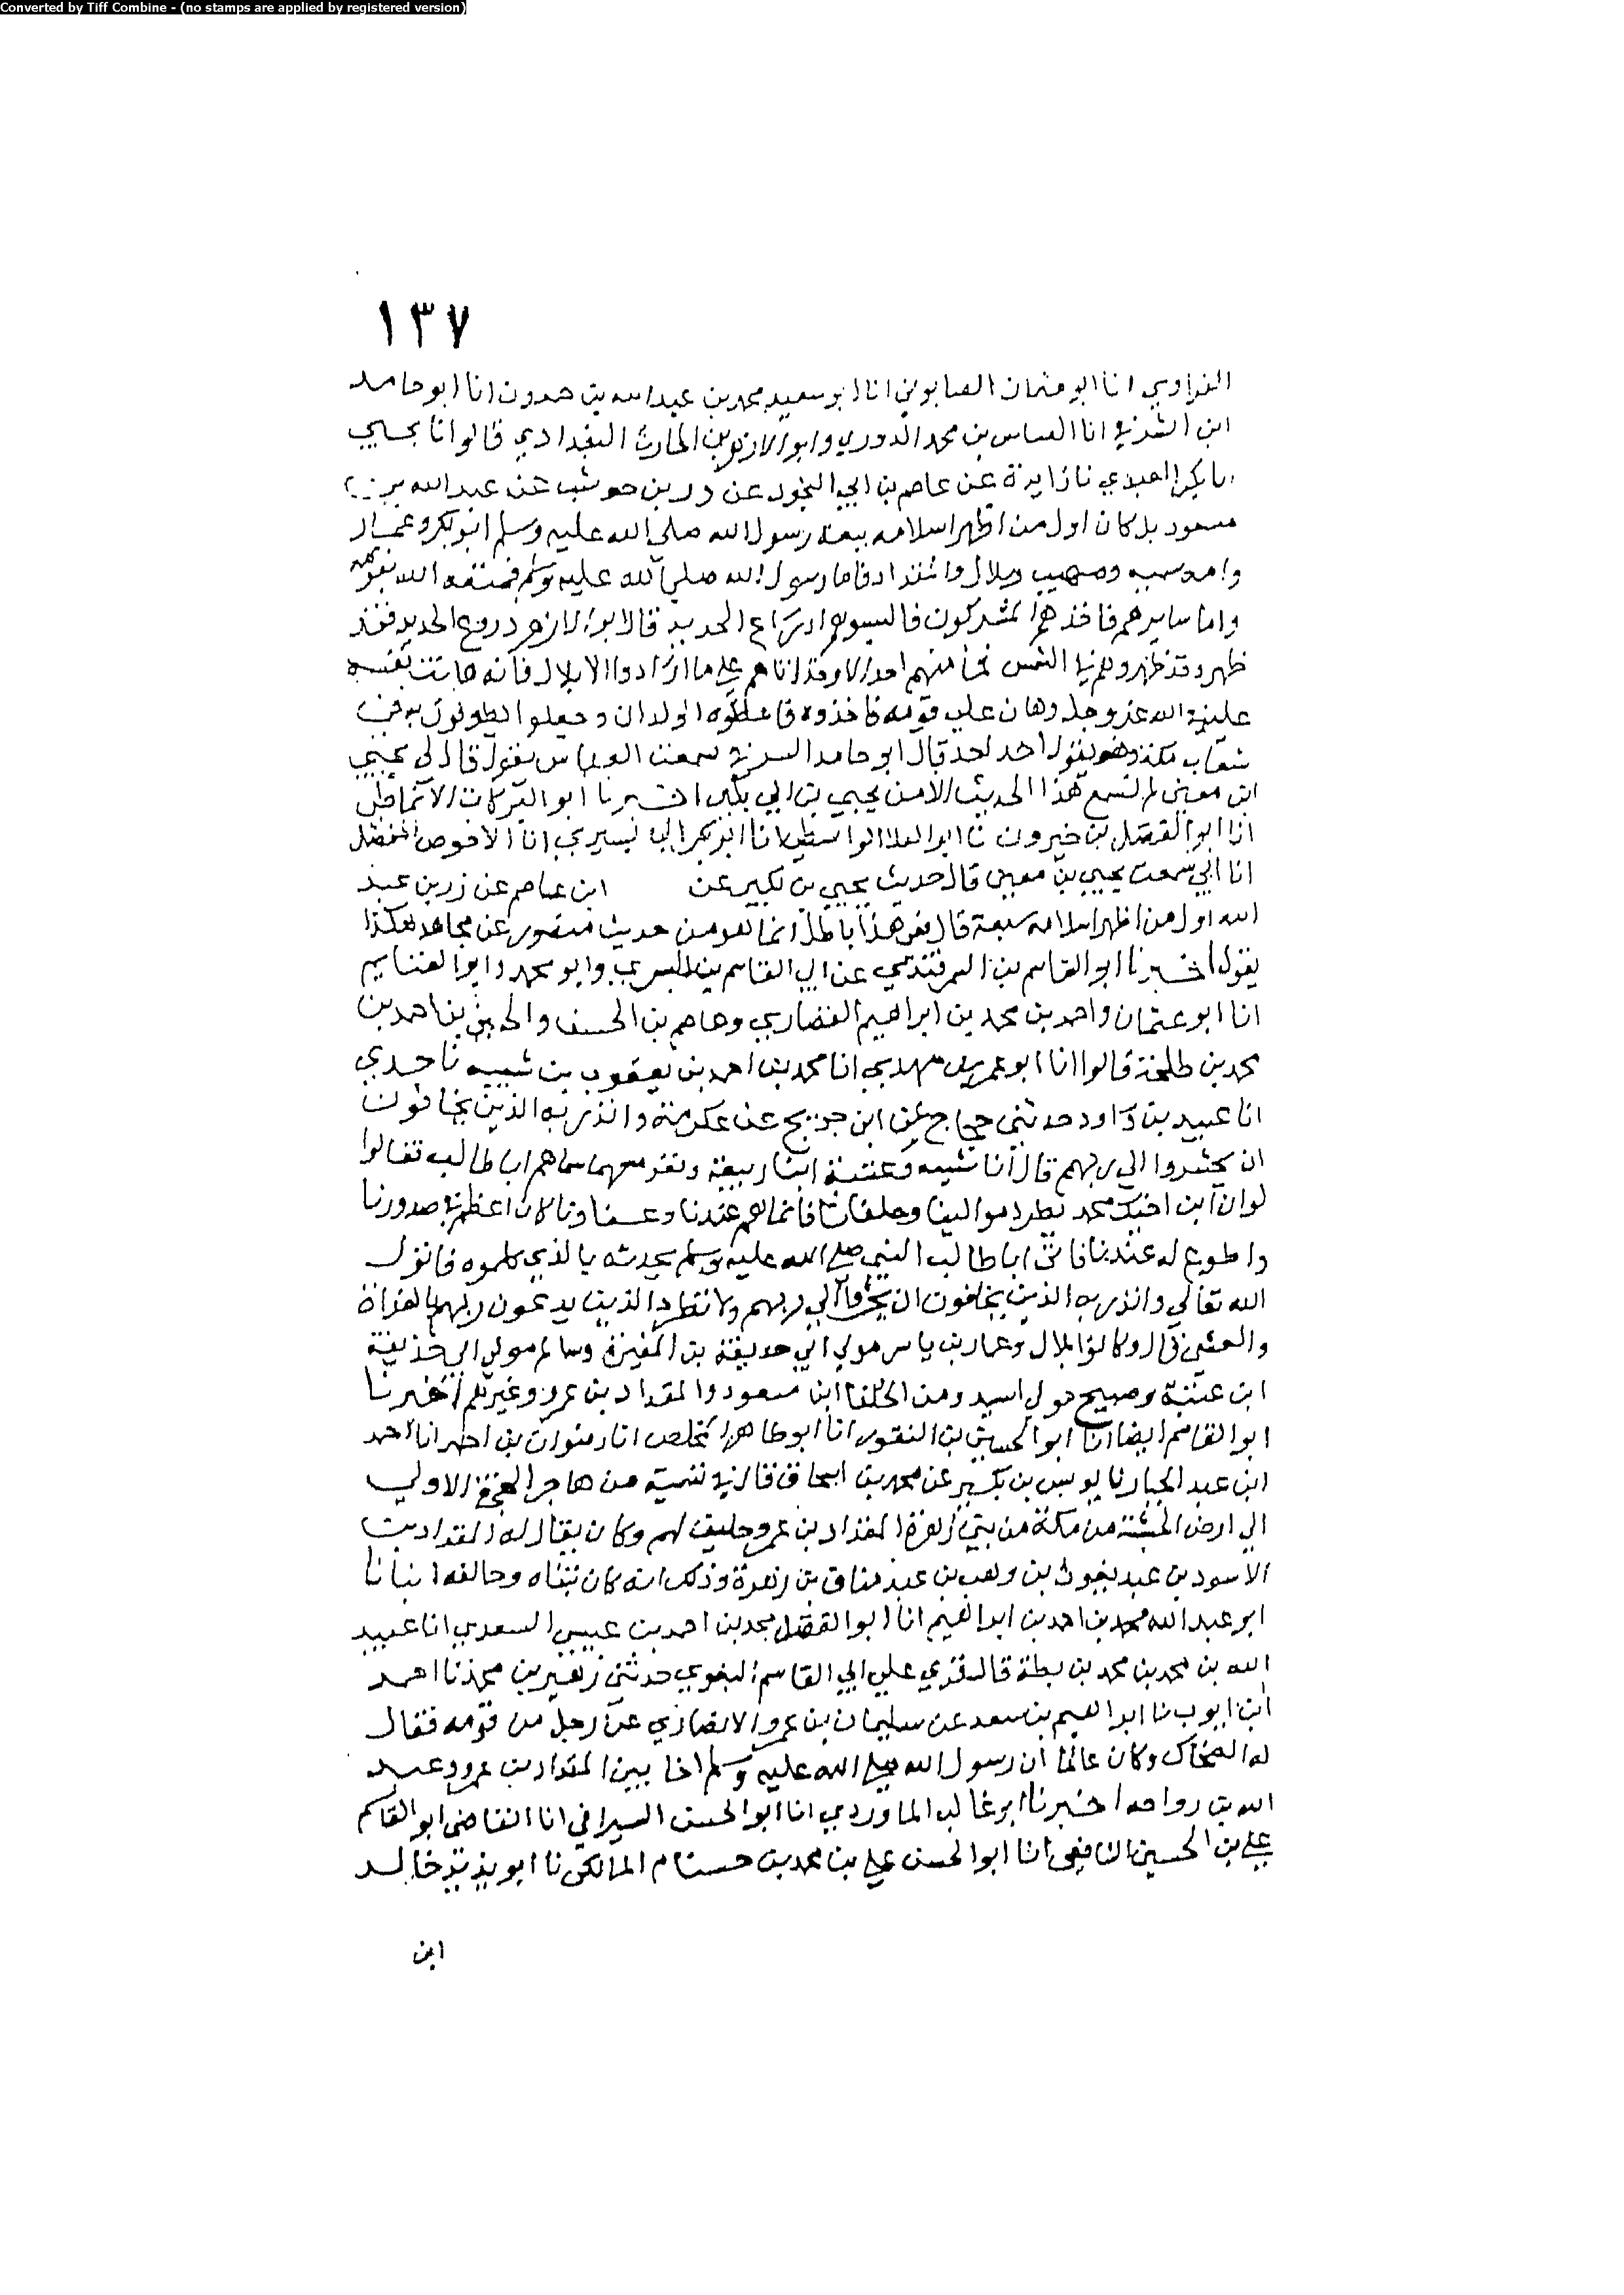 Converted by Tiff Combine - (no stamps are applied by registered version)
١٣٧
الفراوي انا ابو عثمان الصابوني انا ابو سعيد محمد بن عبد الله بن حمدون انا ابو حامد
ابن الشرقي انا العباس بن محمد الدوري وابو الازهر بن الحارث البغدادي قالوا نا يحيى
العبدي نا زايدة عن عاصم بن ابي النجود عن زر بن حوشب عن عبد الله بن
مسعود بل كان اول من اظهر اسلامه سبعة رسول الله صلى الله عليه وسلم ابو بكر وعمار
وامه سميه وصهيب وبلال والمقداد فاما رسول الله صلي الله عليه وسلم فمنعه الله بعمه
واما سايرهم فاخذهم المشركون فالبسوهم ادراع الحديد قال ابو الازهر دروع الحديد
الشمس فما منهم احد الا وقد اتاهم علي ما ارادوا الا بلال فانه هانت نفسه
عليه في الله عز وجل وهان علي قومه فاخذوه فاعطوه الولدان وجعلوا يطوفون به في
شعاب مكة وهو يقول احد احد قال ابو حامد الشرقي سمعت العباس يقول قال لي يحيي
ابن معين لم نسمع هذا الحديث الا من يحيي بن ابي بكير اخبرنا ابو البركات الانماطي
انا ابو الفضل بن خيرون نا ابو العلا الواسطي انا ابو بكر البابسيري انا الاحوص المفضل
انا ابي سمعت يحيي بن معين قال حديث يحيي بن بكير عن ابن عاصم عن زر بن عبد
الله اول من اظهر اسلامه سبعة قال نعم هذا باطل انما هو من حديث منصور عن مجاهد هكذا
يقول اخبرنا ابو القاسم بن السمرقندي عن ابي القاسم بن البسري وابو محمد وابو الغنايم
انا ابو عثمان واحمد بن محمد بن ابراهيم القصاري وعاصم بن الحسن والحسين بن احمد بن
محمد بن طلحة قالوا انا ابو عمر بن مهدي انا محمد بن احمد بن يعقوب بن شيبه نا جدي
انا عبيد بن داود حدثني حجاج عن ابن جريج عن عكرمة وانذر به الذين يخافون
ان يحشروا الي ربهم قال انا شيبه وعتبة ابنا ربيعة ونفر معهما سماهم ابا طالب فقالوا
لو ان ابن اخيك محمد يطرد موالينا وحلفانا فانما هم عندنا وعسفاونا كان اعظم في صدورنا
واطوع له عندنا فاتى ابا طالب النبي صلي الله عليه وسلم يحدثه بالذي كلموه فانزل
الله تعالي وانذر به الذين يخافون ان يحشروا الي ربهم ولا تطرد الذين يدعون ربهم بالغداة
والعشي قال وكانوا بلال وعمار بن ياسر مولى ابي حذيفة بن المغيرة وسالم مولى ابي حذيفة
ابن عتبة وصبيح مولى اسيد ومن الحلفا ابن مسعود والمقداد بن عمرو وغيرهم اخبرنا
ابو القاسم ايضا انا ابو الحسين بن النقور انا ابو طاهر المخلص انا رضوان بن احمد انا احمد
ابن عبد الجبار نا يونس بن بكير عن محمد بن اسحاق قال في تسمية من هاجر الهجرة الاولي
الي ارض الحبشة من مكة من بني زهرة المقداد بن عمرو حليف لهم وكان يقال له المقداد بن
الاسود بن عبد يغوث بن وهب بن عبد مناف بن زهرة وذلك انه كان تبناه وحالفه انبانا
ابو عبد الله محمد بن احمد بن ابراهيم انا ابو الفضل محمد بن احمد بن عيسى السعدي انا عبيد
الله بن محمد بن محمد بن بطة قال قري علي ابي القاسم البغوي حدثني زهير بن محمد نا احمد
ابن ايوب نا ابراهيم بن سعد عن سليمان بن عمرو الانصاري عن رجل من قومه فقال
له الضحاك وكان عالما ان رسول الله صلي الله عليه وسلم اخا بين المقداد بن عمرو وعبد
الله بن رواحه اخبرنا ابو غالب الماوردي انا ابو الحسن السيرافي انا القاضي ابو القاسم
علي بن الحسين الشافعي انا ابو الحسن علي بن محمد بن حسنام المالكي نا ابو يزيد خالد
ابن